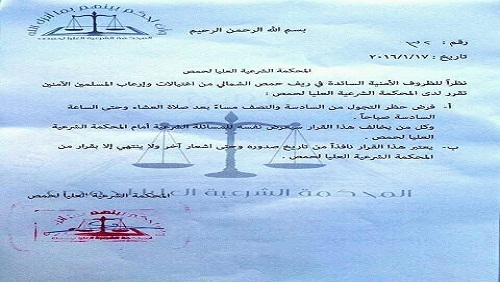 وأن احكم بينهم بما أنزل الله
المحكمة الشرعية العليا لحمص
بسم الله الرحمن الرحيم
رقم : ٣٢
تاريخ : ٢٠١٦/١/١٧
المحكمة الشرعية العليا لحمص
نظراً للظروف الأمنية السائدة في ريف حمص الشمالي من اغتيالات وإرعاب المسلمين الآمنين
تقرر لدى المحكمة الشرعية العليا لحمص :
أ- فرض حظر التجول من السادسة والنصف مساءً بعد صلاة العشاء وحتى الساعة
السادسة صباحاً .
وكل من يخالف هذا القرار سيعرض نفسه للمسائلة الشرعية أمام المحكمة الشرعية
العليا لحمص .
ب- يعتبر هذا القرار نافذاً من تاريخ صدوره وحتى اشعار آخر ولا ينتهي إلا بقرار من
المحكمة الشرعية العليا لحمص .
المحكمة الشرعية العليا لحمص
المحكمة الشرعية العليا لحمص